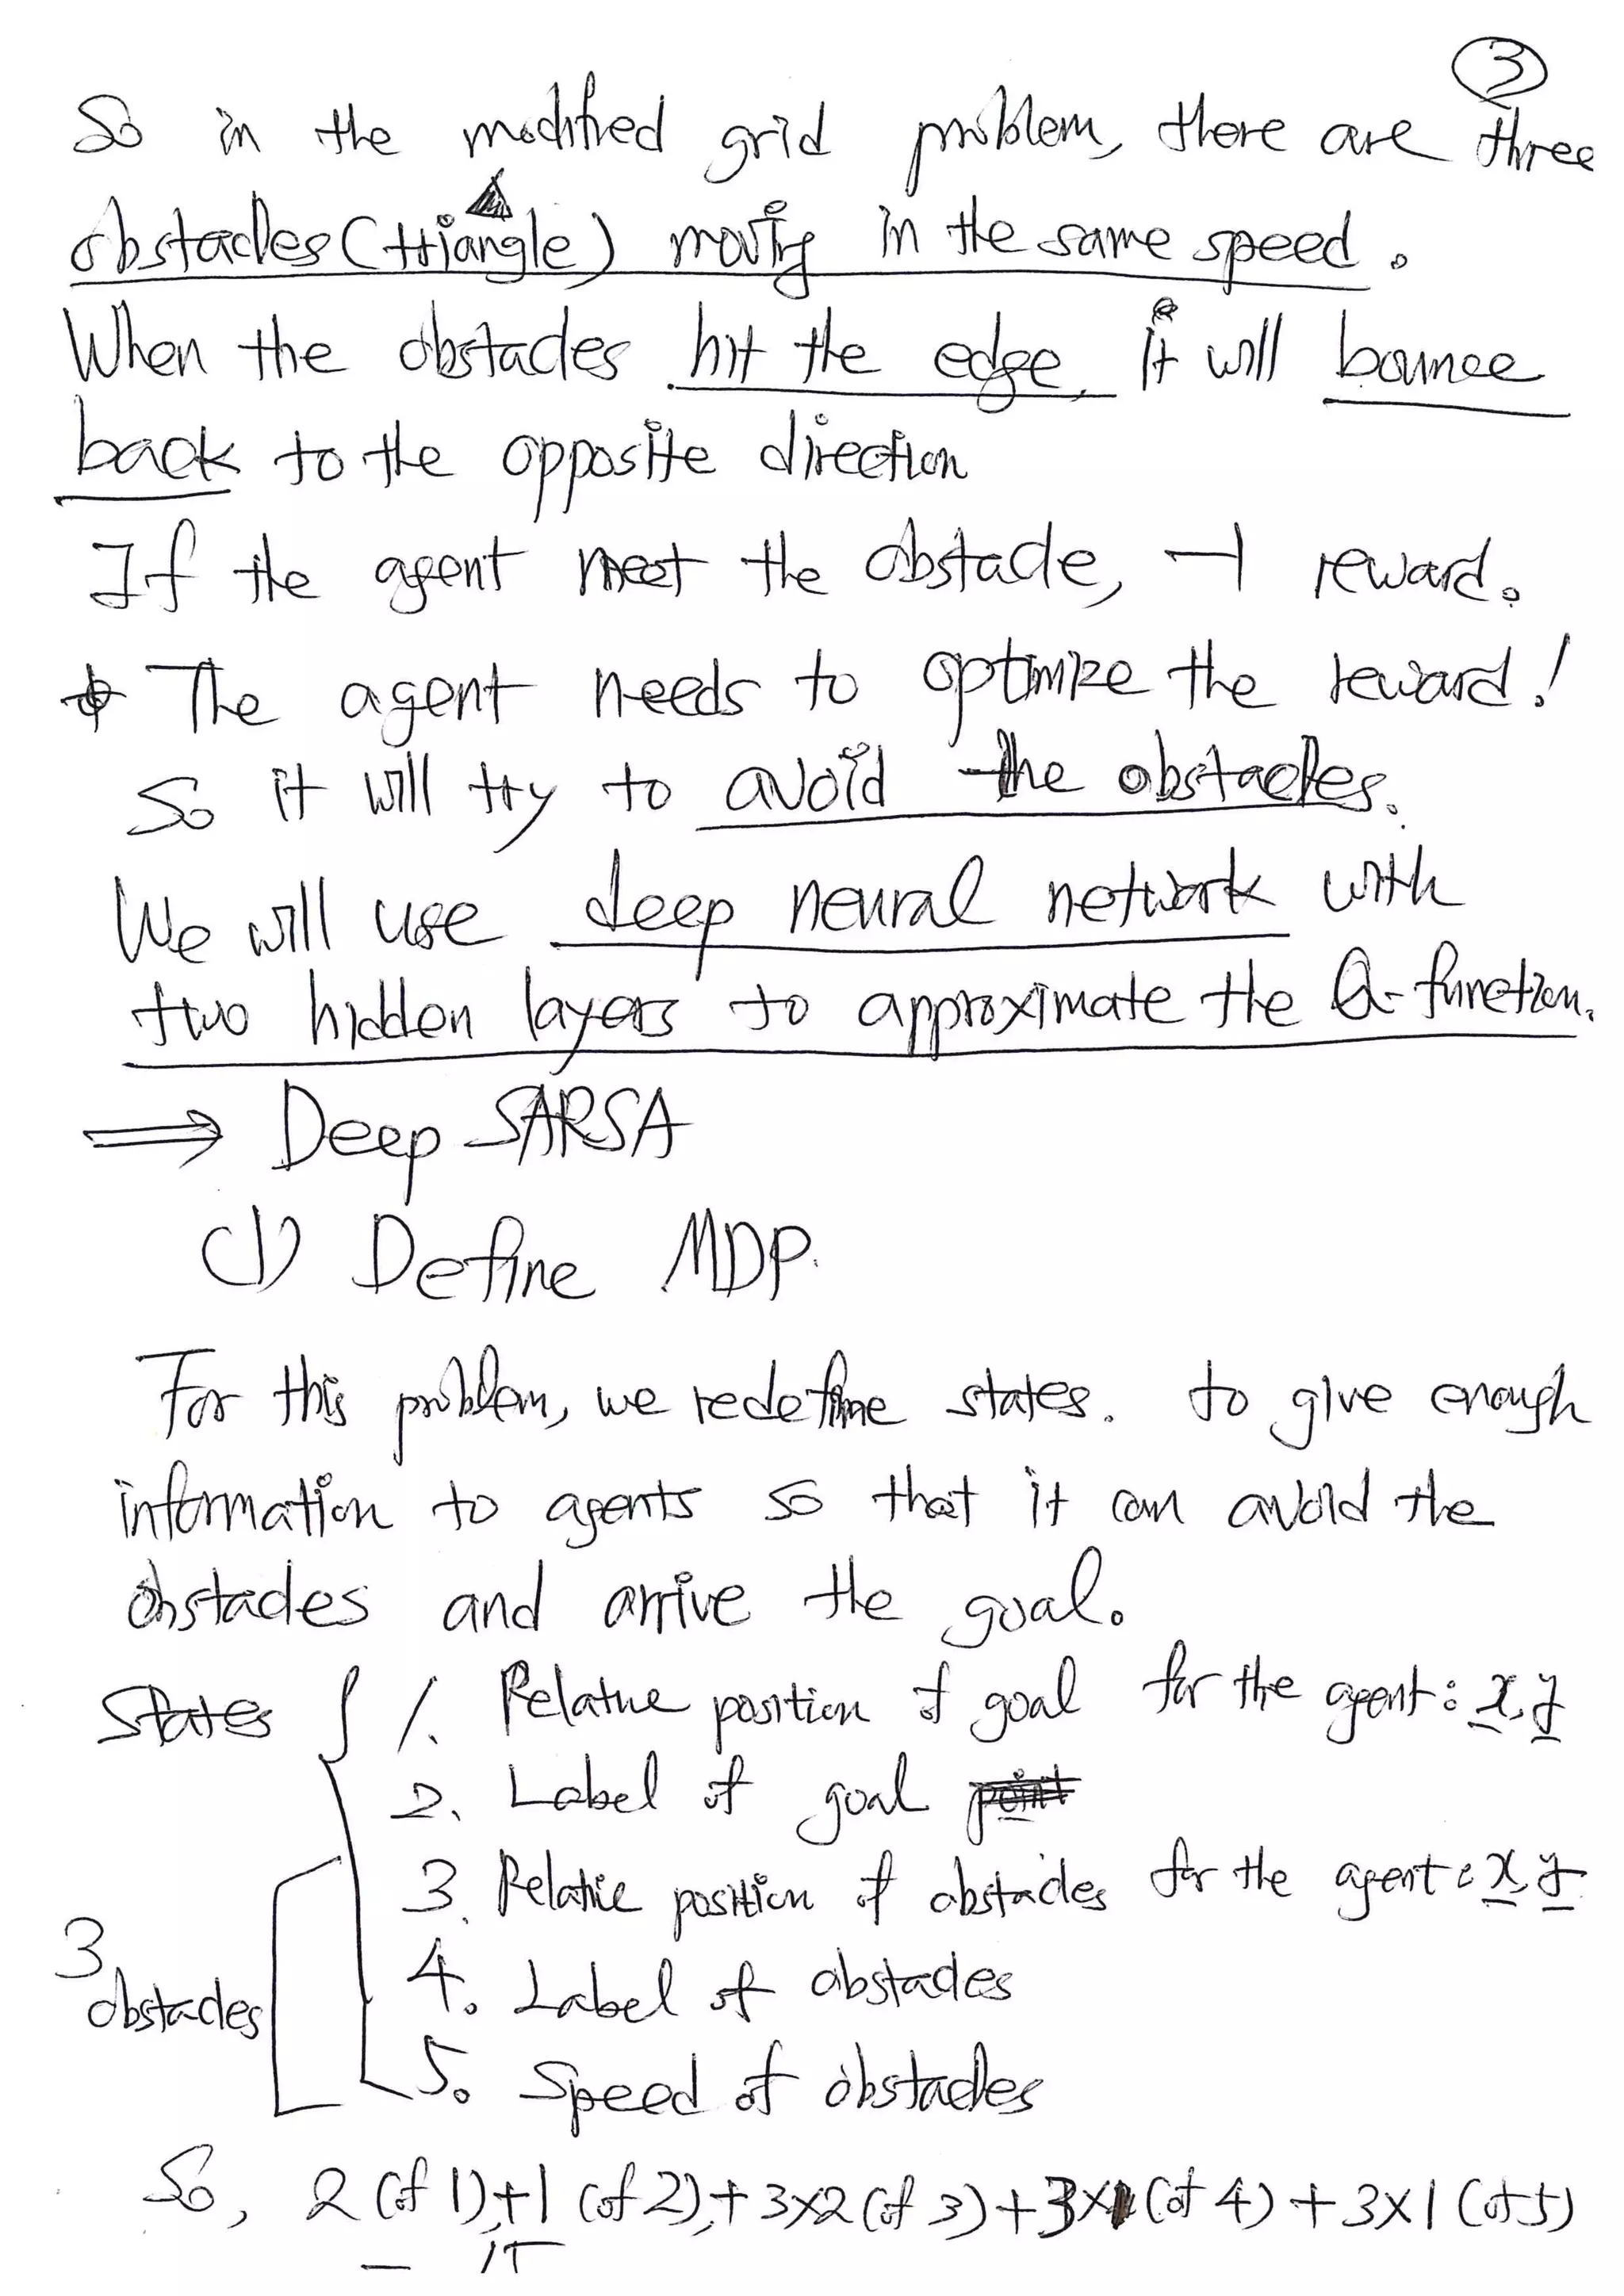 ③
So in the modified grid problem, there are three
obstacles (triangle) moving in the same speed.
When the obstacles hit the edge, it will bounce
back to the opposite direction
If the agent meet the obstacle, -1 reward.
The agent needs to optimize the reward!
So it will try to avoid the obstacles.
We will use deep neural network with
two hidden layers to approximate the Q-function.
⇒ Deep SARSA
(1) Define MDP.
For this problem, we redefine states. to give enough
information to agents so that it can avoid the
obstacles and arrive the goal.
States { 1. Relative position of goal for the agent: x, y
2. Label of goal
3. Relative position of obstacles for the agent: x, y
4. Label of obstacles
3 obstacles
5. Speed of obstacles
So, 2 (of 1) + 1 (of 2) + 3x2 (of 3) + 3x1 (of 4) + 3x1 (of 5)